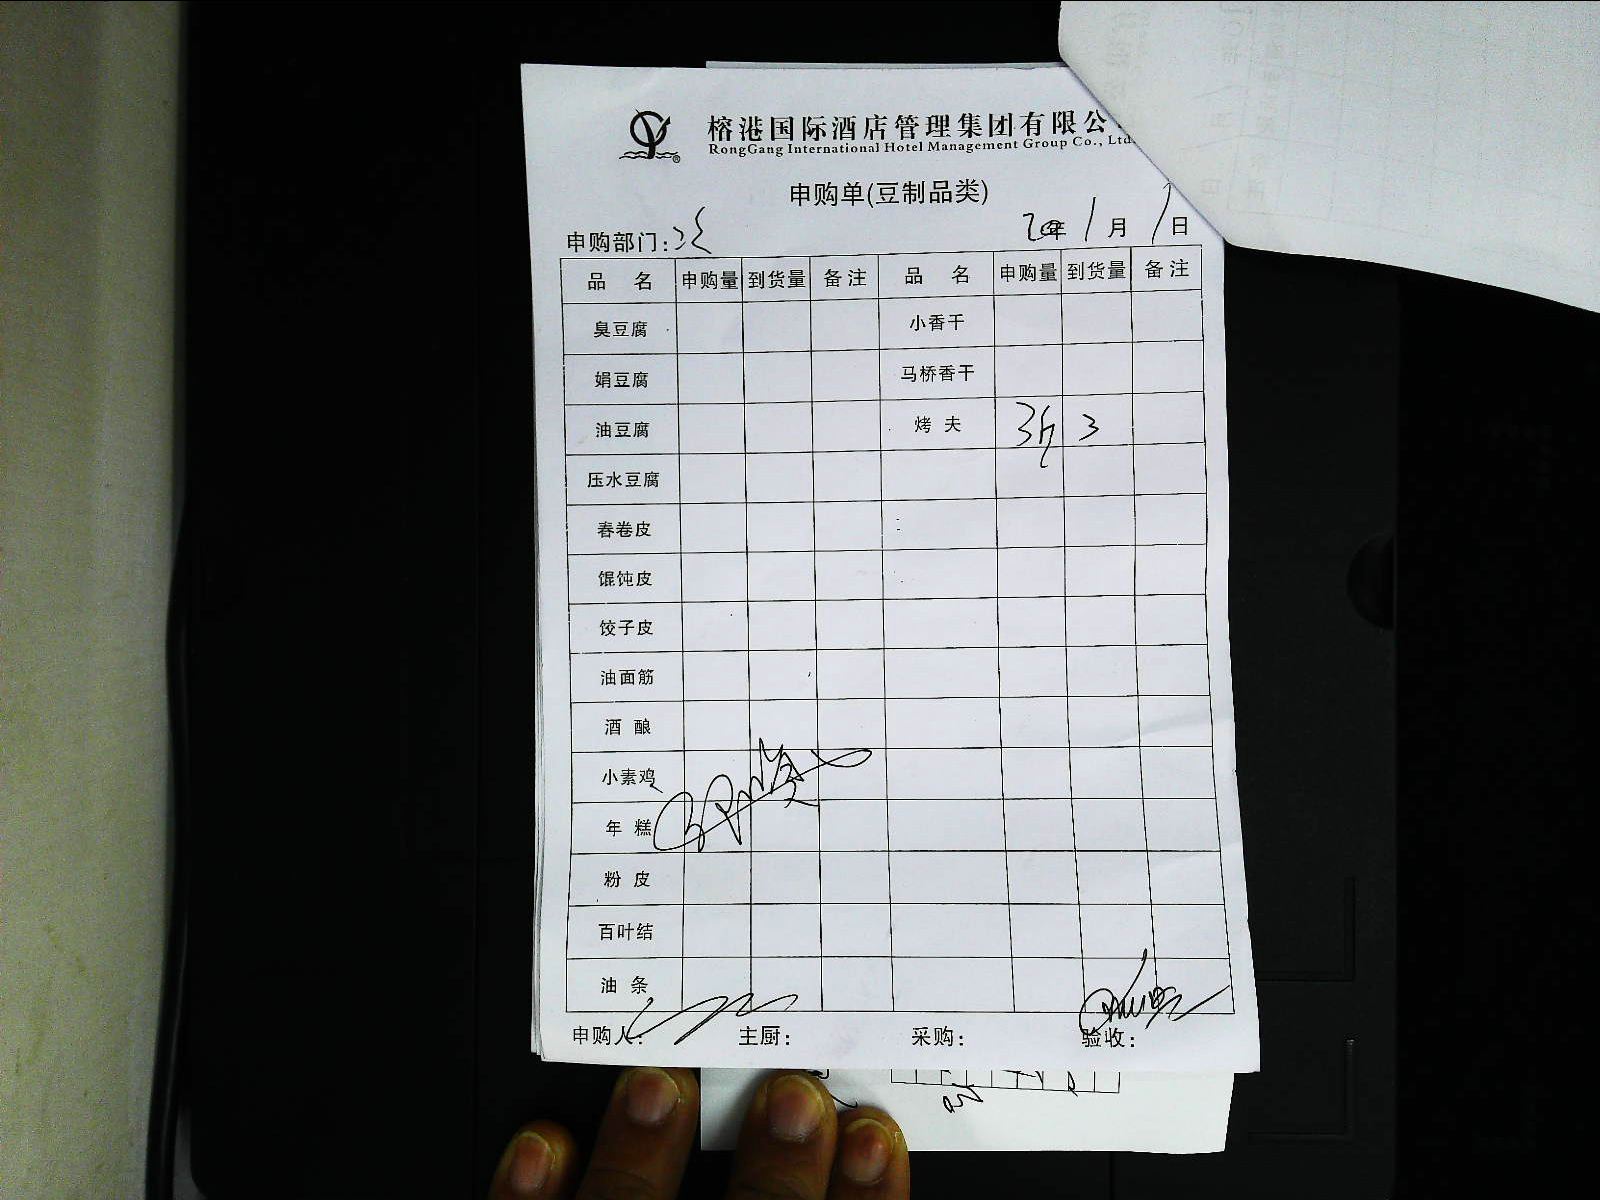 榕港国际酒店管理集团有限公
RongGang International Hotel Management Group Co., Ltd.
申购单(豆制品类)
申购部门: 年 1 月 1 日
品 名 申购量 到货量 备注 品 名 申购量 到货量 备注
臭豆腐 小香干
娟豆腐 马桥香干
油豆腐 烤 夫 3斤 3
压水豆腐
春卷皮
馄饨皮
饺子皮
油面筋
酒 酿
小素鸡
年 糕
粉 皮
百叶结
油 条
申购人: 主厨: 采购: 验收: